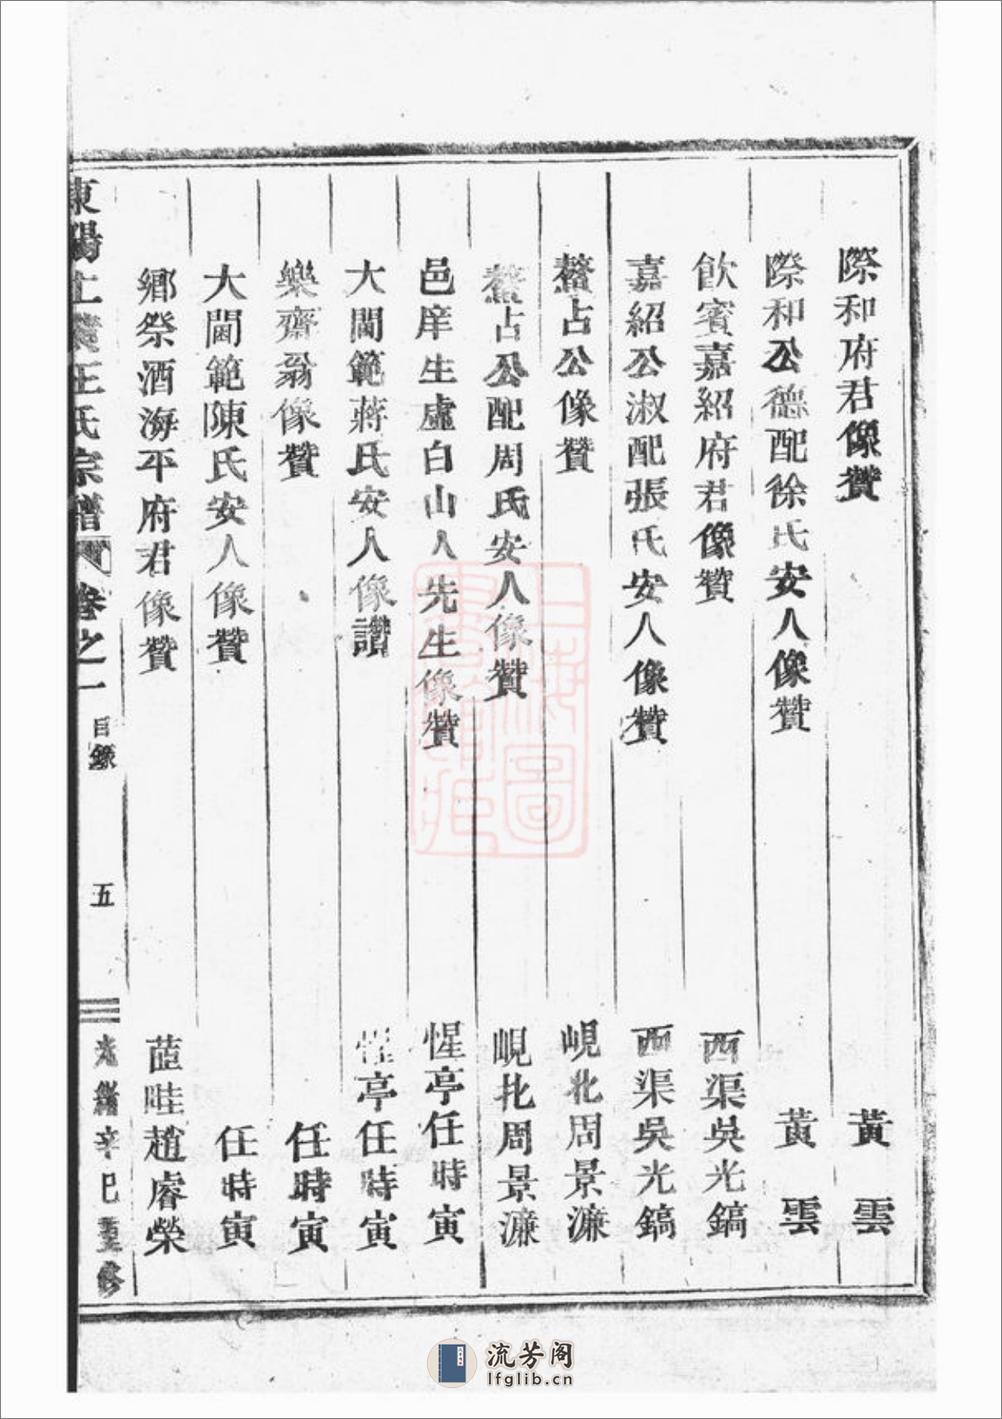 際和府君像贊 黃雲
際和公德配徐氏安人像贊 黃雲
飮賓嘉紹府君像贊 西渠吳光鎬
嘉紹公淑配張氏安人像贊 西渠吳光鎬
鰲占公像贊 峴北周景濂
鰲占公配周氏安人像贊 峴北周景濂
邑庠生虛白山人先生像贊 惺亭任時寅
大閫範蔣氏安人像讚 惺亭任時寅
樂齋翁像贊 任時寅
大閫範陳氏安人像贊 任時寅
鄉祭酒海平府君像贊 茝畦趙睿榮
東陽上 王氏宗譜 卷之一 目錄 五 光緒辛巳重修
流芳阁
lfglib.cn